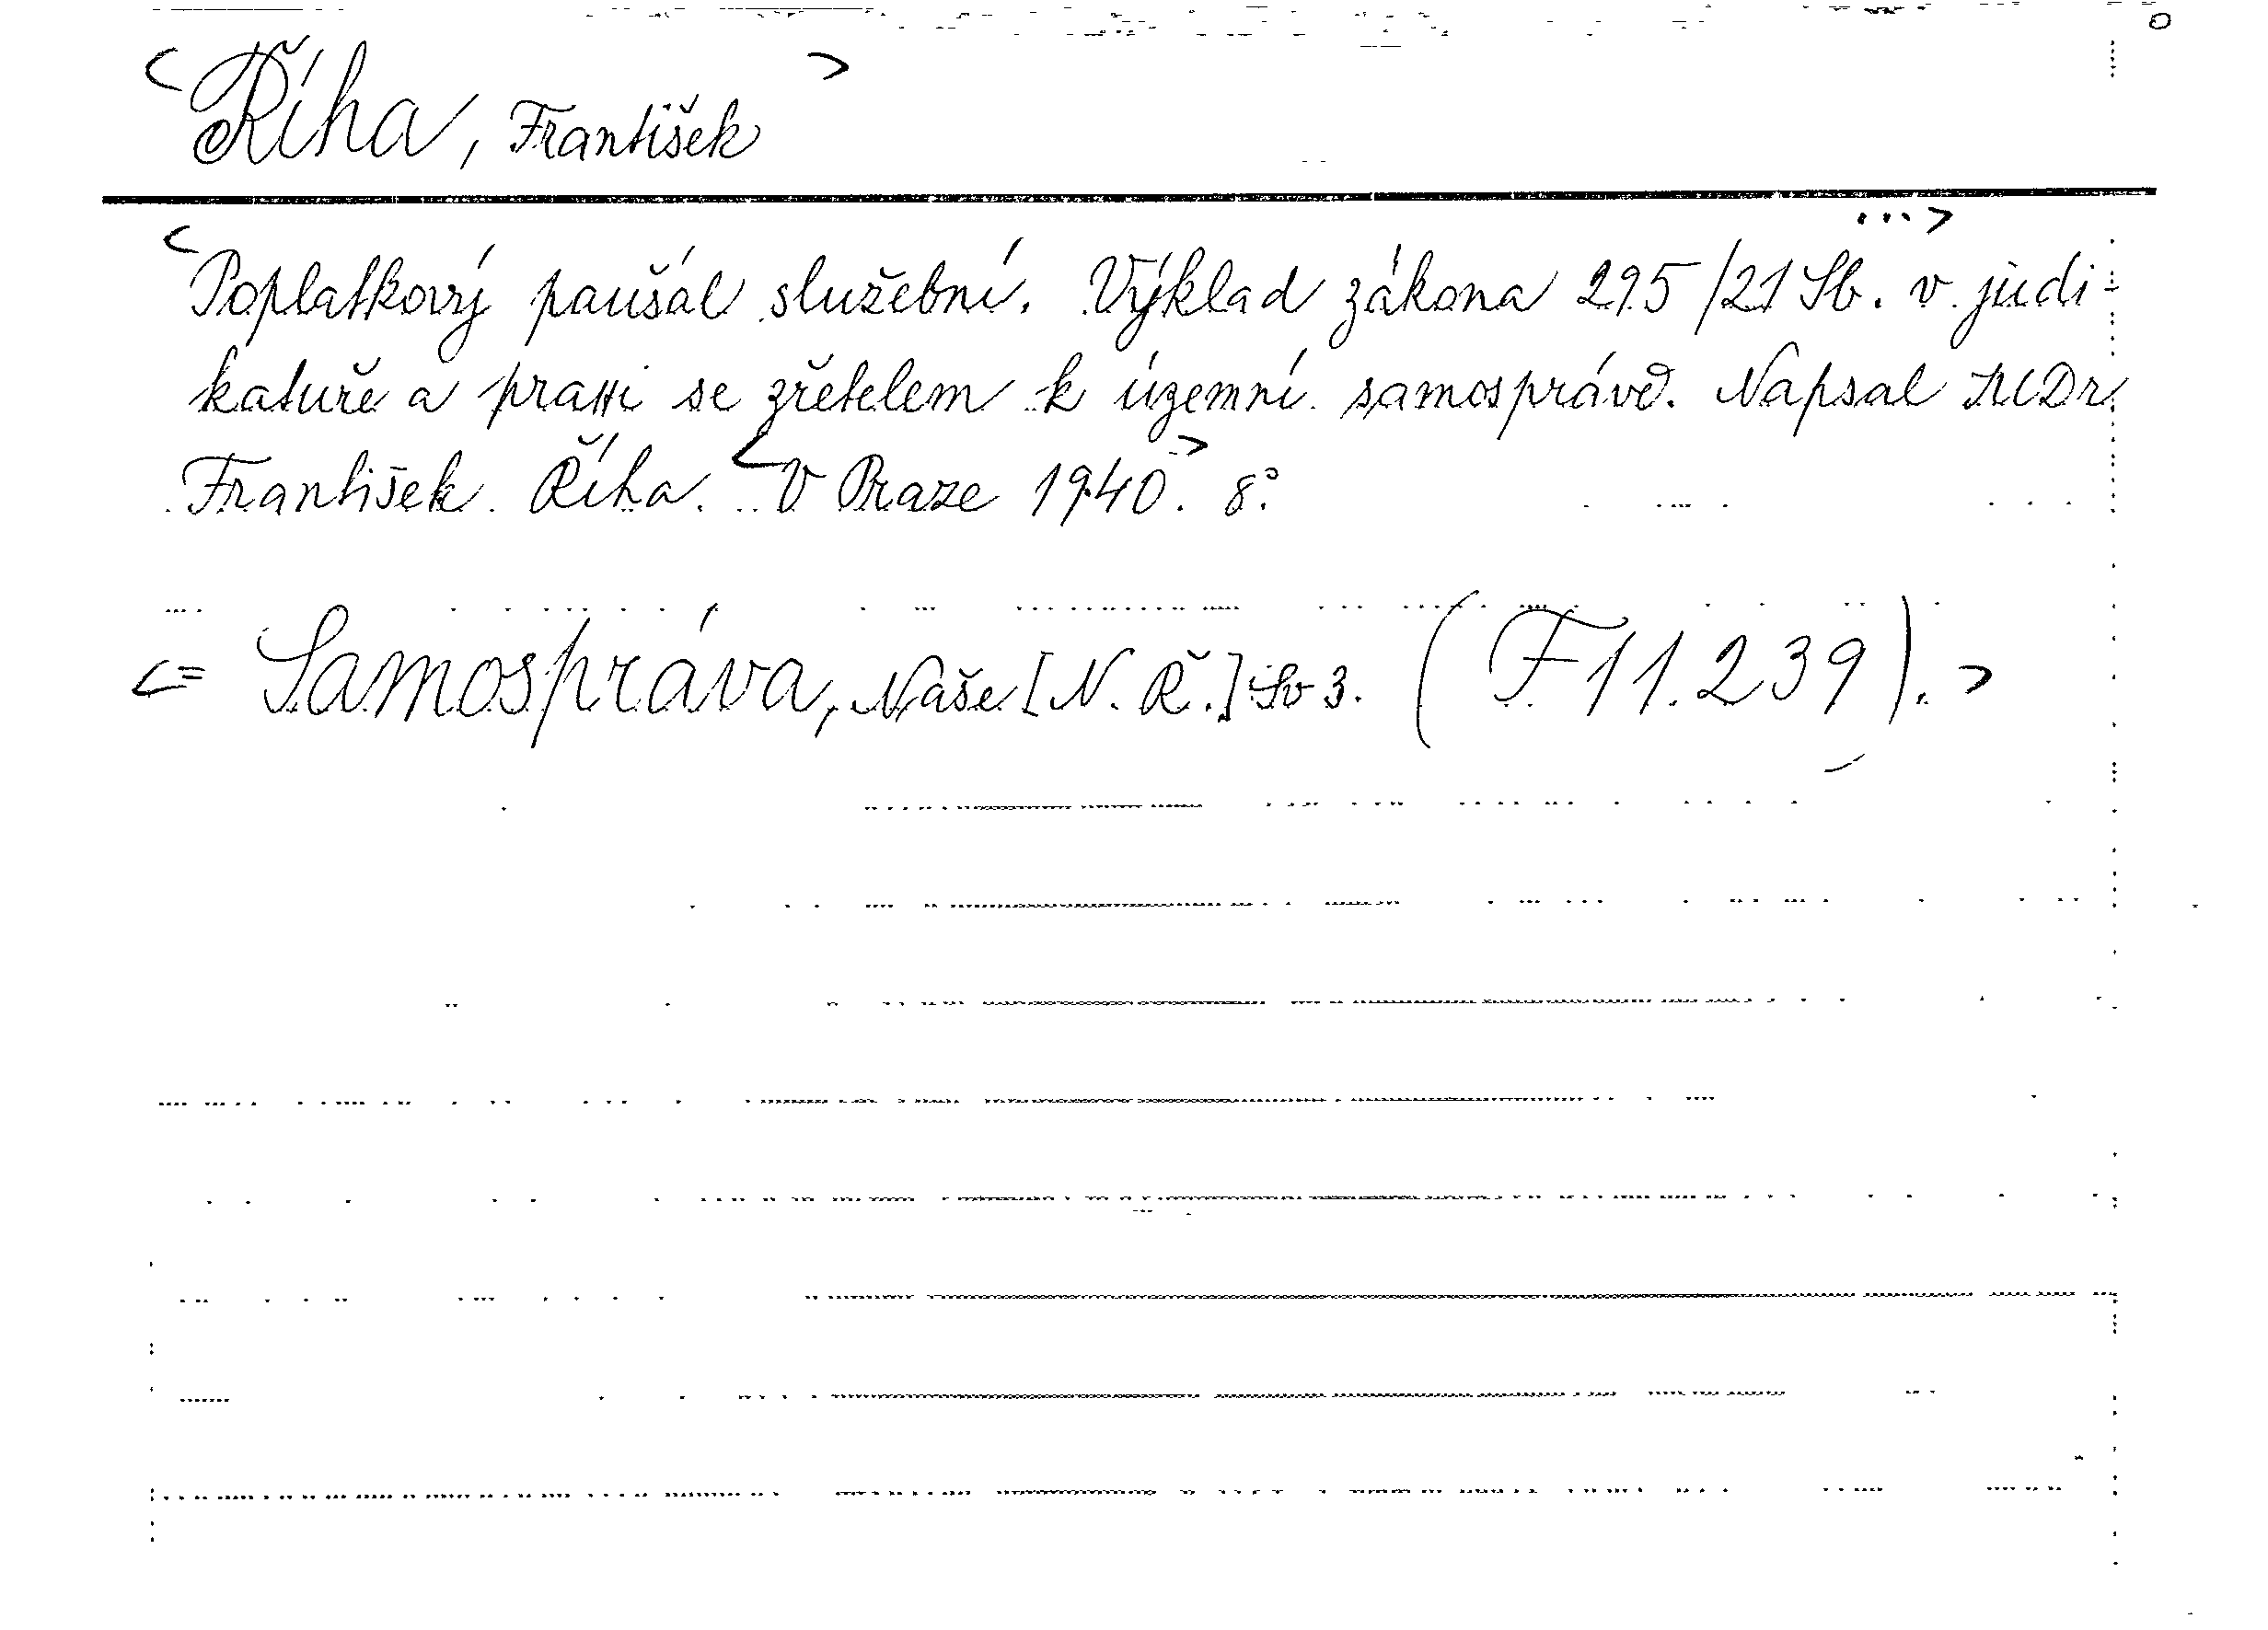 <Říha, František>
<Poplatkový paušál služební. Výklad zákona 295/21 Sb. v judi- ...>
katuře a praxi se zřetelem k územní samosprávě. Napsal JUDr
František Říha. <V Praze 1940.> 8°.
<= Samospráva, Naše [N. Ř.] Sv 3. (F 11.239).>